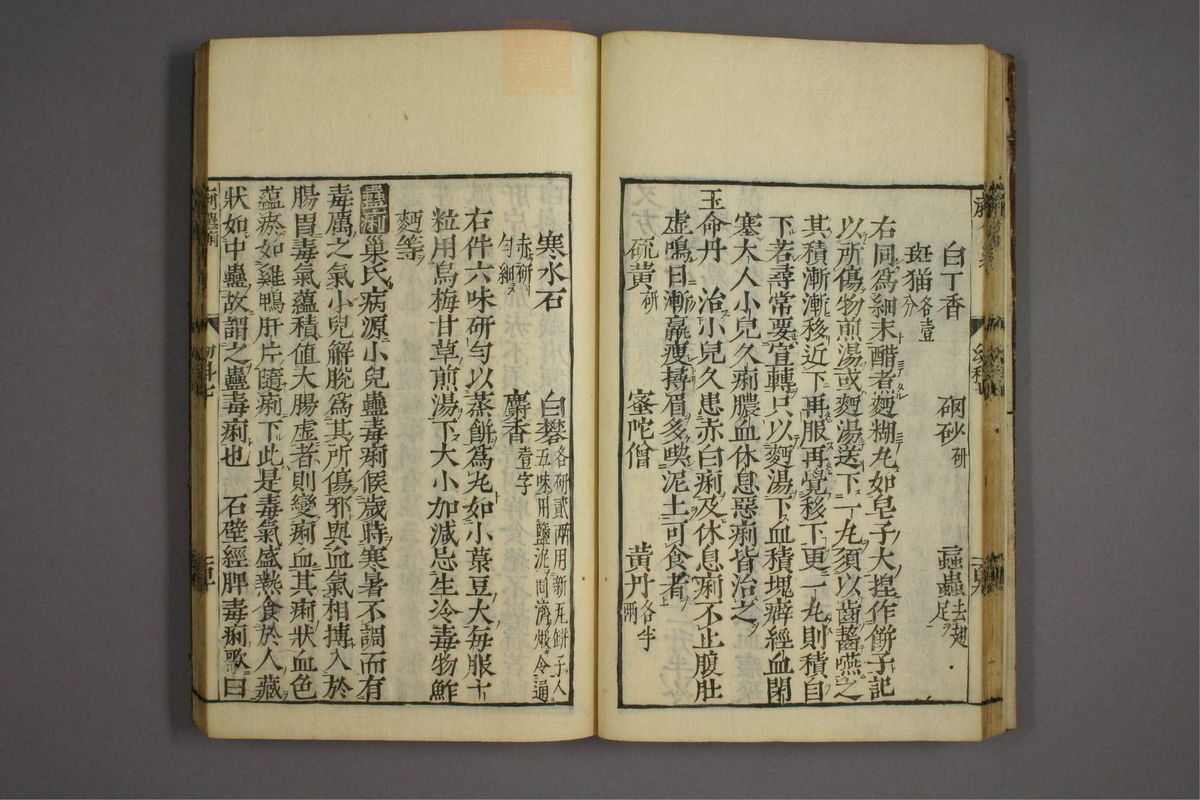 白丁香　硇砂研　蝱蟲去翅足
斑猫各壹分
右同爲細末醋者麪糊丸如皂子大揑作餅子記
以所傷物煎湯或麪湯送下一丸須以齒齧嚥之
其積漸漸移近下再服再覺移下更一丸則積自
下若尋常要宣轉只以麪湯下血積塊癖經血閉
塞大人小兒久痢膿血休息惡痢皆治之
玉命丹　治小兒久患赤白痢及休息痢不止腹肚
虚鳴日漸羸瘦撏眉多喫泥土可食者
硫黄研　蜜陀僧　黄丹各半兩
寒水石　白礬各研貳兩用新瓦餅子入五味用鹽泥固濟煅令通
赤研勻細　麝香壹字
右件六味研勻以蒸餅爲丸如小菉豆大每服十
粒用烏梅甘草煎湯下大小加減忌生冷毒物鮓
麪等
蠱痢 巢氏病源小兒蠱毒痢候歲時寒暑不調而有
毒厲之氣小兒解脱爲其所傷邪與血氣相摶入於
腸胃毒氣蘊積值大腸虚者則變痢血其痢狀血色
蘊瘀如雞鴨肝片隨痢下此是毒氣盛熱食於人藏
狀如中蠱故謂之蠱毒痢也　石壁經脾毒痢歌曰